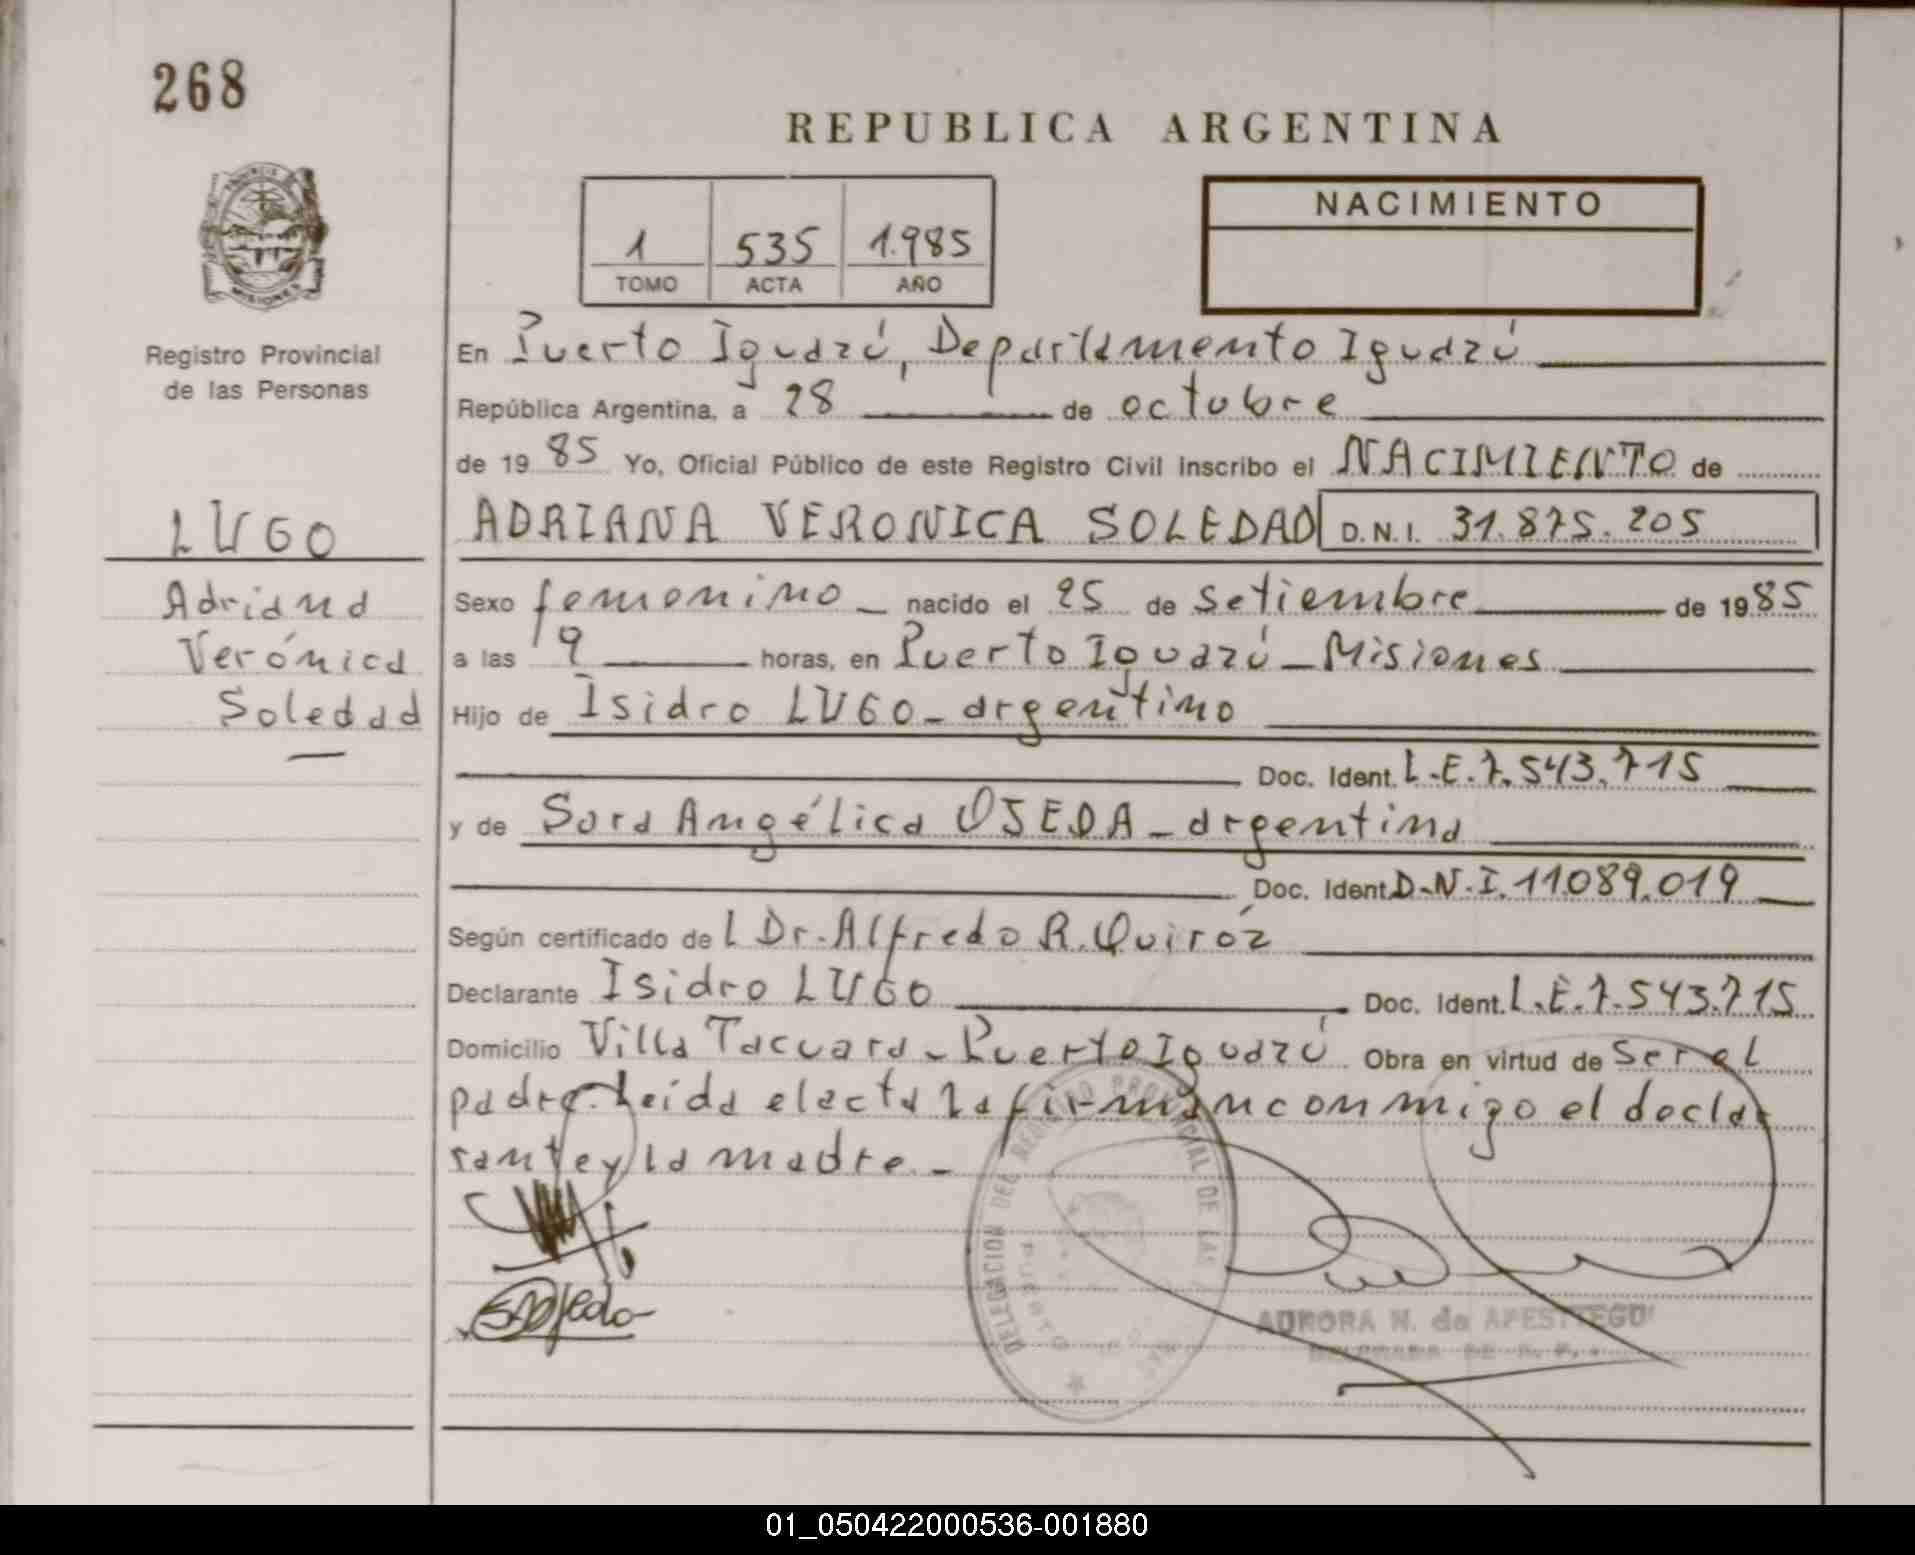 268
REPUBLICA ARGENTINA
MISIONES
Registro Provincial
de las Personas
1 535 1.985
TOMO ACTA AÑO
NACIMIENTO
En Puerto Iguazú, Departamento Iguazú
República Argentina, a 28 de octubre
de 19 85 Yo, Oficial Público de este Registro Civil inscribo el NACIMIENTO de
LUGO
ADRIANA VERONICA SOLEDAD D.N.I. 31.875.205
Adriana
Verónica
Soledad
Sexo femenino nacido el 25 de setiembre de 1985
a las 9 horas, en Puerto Iguazú - Misiones
Hijo de Isidro LUGO - argentino
Doc. Ident. L.E.7.543.715
y de Sara Angélica OJEDA - argentina
Doc. Ident. D.N.I. 11.089.019
Según certificado del Dr. Alfredo R. Quiróz
Declarante Isidro LUGO Doc. Ident. L.E.7.543.715
Domicilio Villa Tacuara - Puerto Iguazú Obra en virtud de ser el
padre. Leída el acta la firman conmigo el decla-
rante y la madre. -
DELEGACION DEL REGISTRO PROVINCIAL DE LAS
AURORA N. de APESTEGUI
01_050422000536-001880